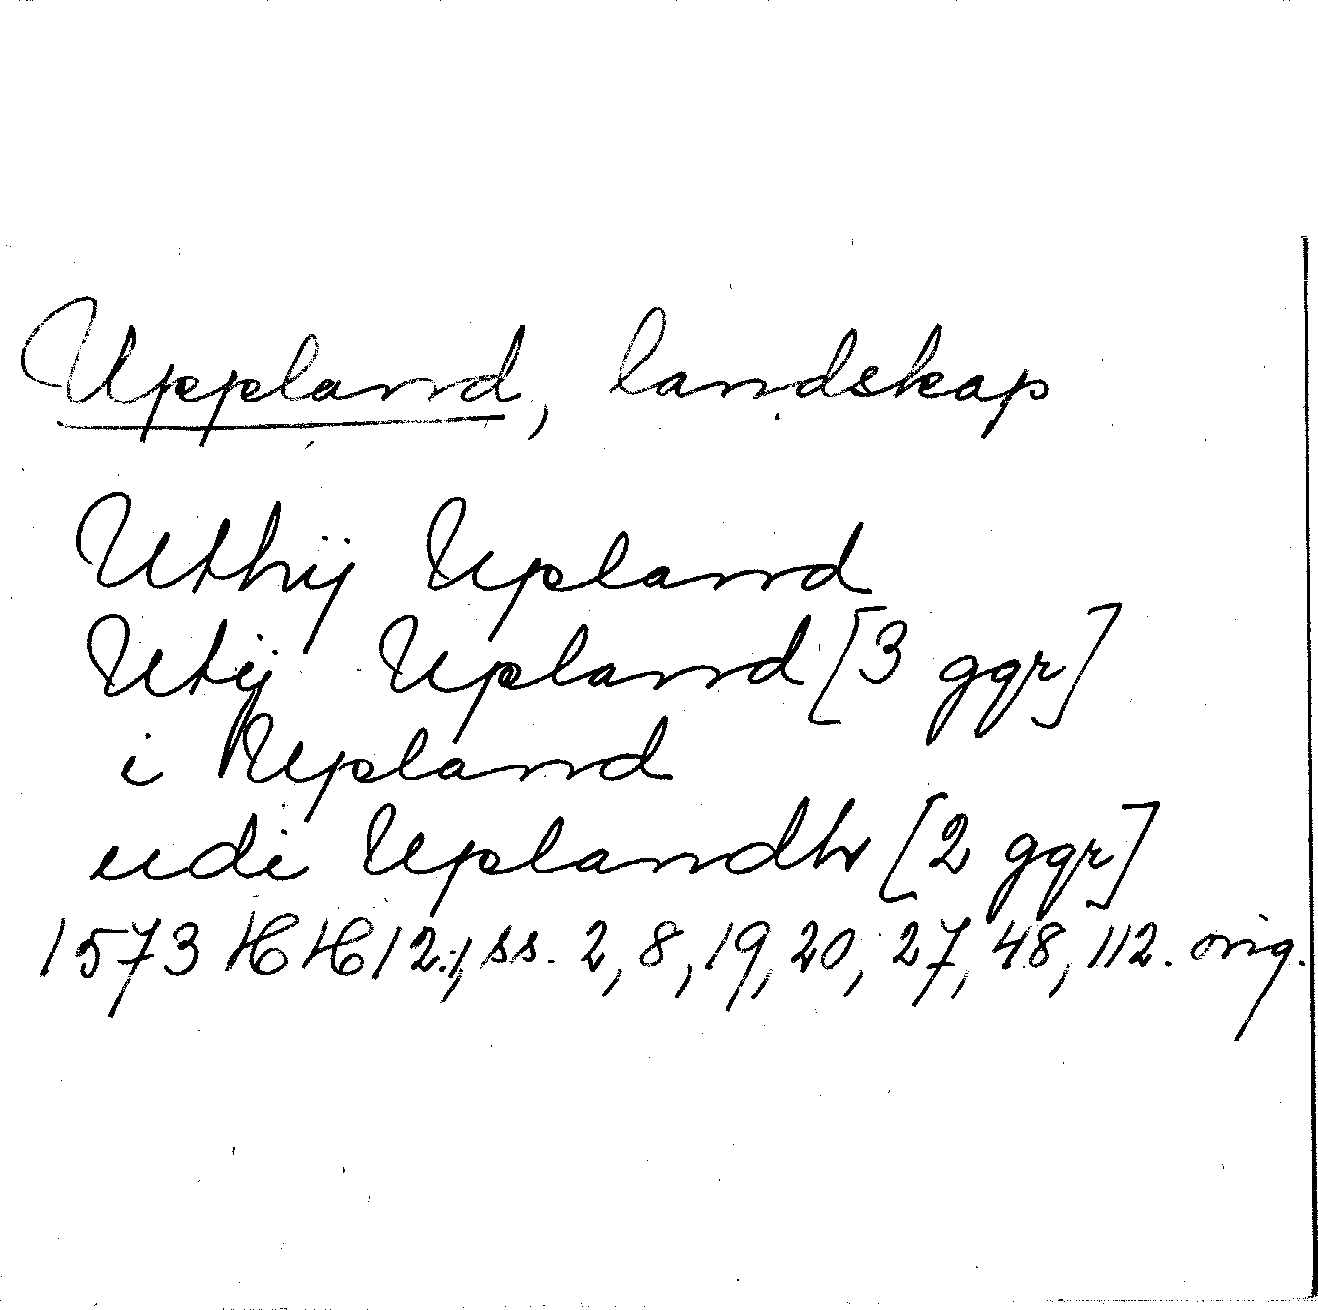 Uppland, landskap
Uthij Upland
Utij Upland [3 ggr]
i Upland
udi Uplandh [2 ggr]
1573 HH 12:1, ss. 2, 8, 19, 20, 27, 48, 112. orig.